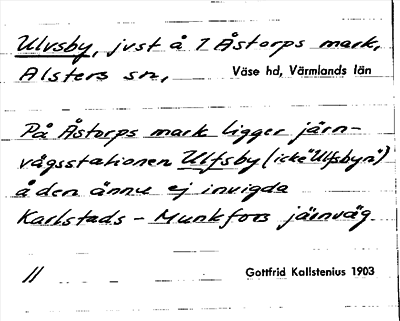 Ulvsby, just å 7 Åstorps mark,
Alsters sn, Väse hd, Värmlands län
På Åstorps mark ligger järn-
vågsstationen Ulfsby (icke "Ulfsbyn")
å den ännu ej invigda
Karlstads - Munkfors järnväg.
11 Gottfrid Kallstenius 1903